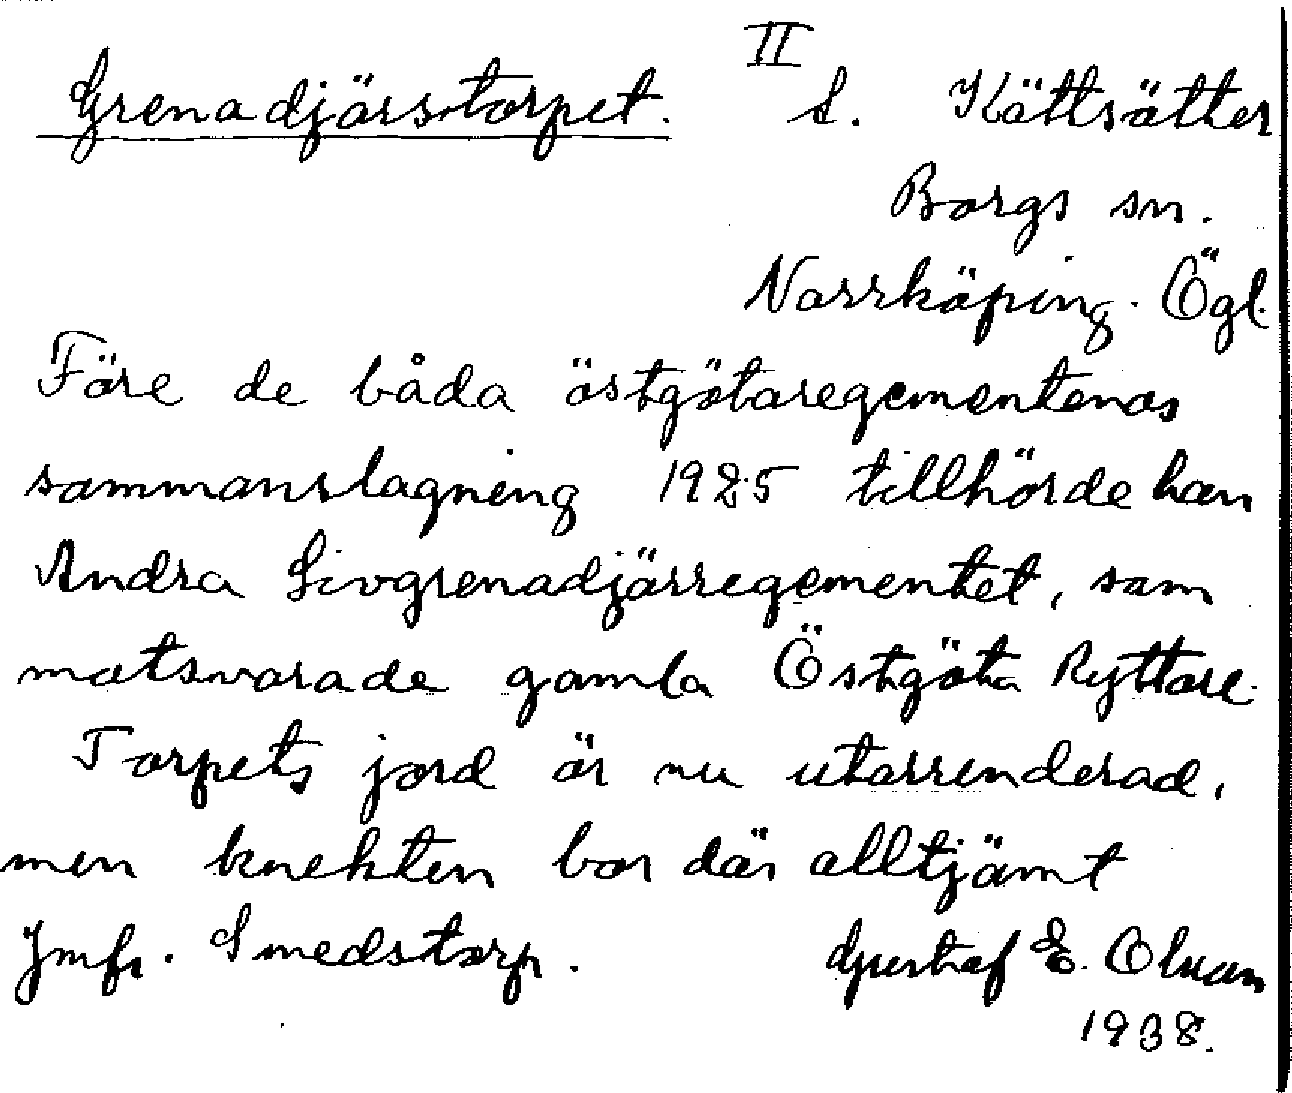 II
Grenadjärstorpet. S. Kättsätter
Borgs sn.
Norrköping. Ögl.
Före de båda östgötaregementenas
sammanslagning 1925 tillhörde han
Andra Livgrenadjärregementet, som
motsvarade gamla Östgöta Ryttare.
Torpets jord är nu utarrenderad,
men knekten bor där alltjämt
Jmfr. Smedstorp. Gustaf E. Olsson
1938.